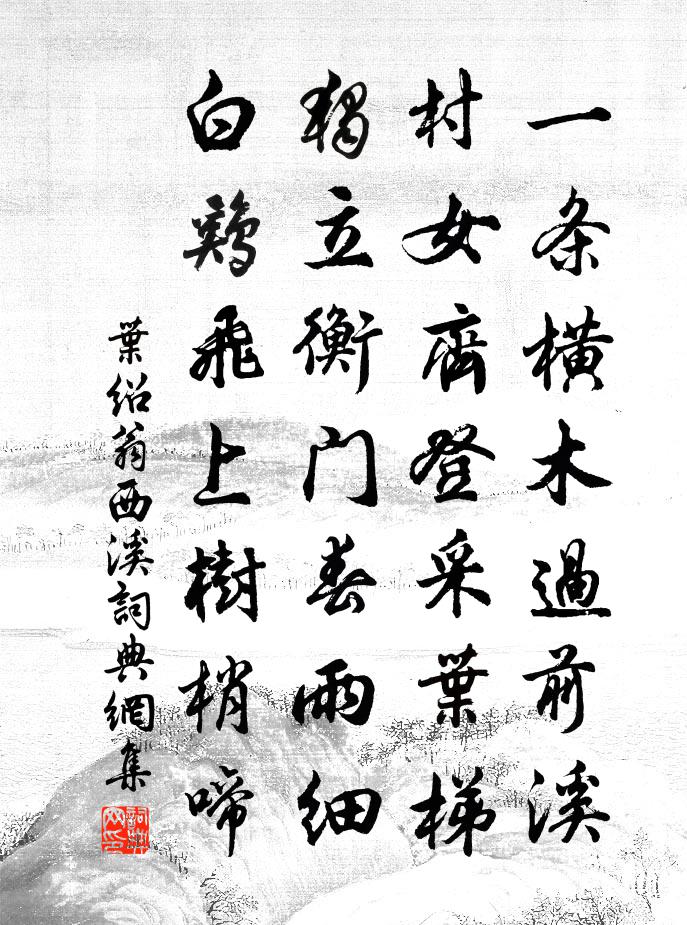 一条橫木過前溪
村女齊登采葉梯
獨立衡门春雨細
白鷄飛上樹梢啼
葉紹翁西溪詞典網集
詞典网印